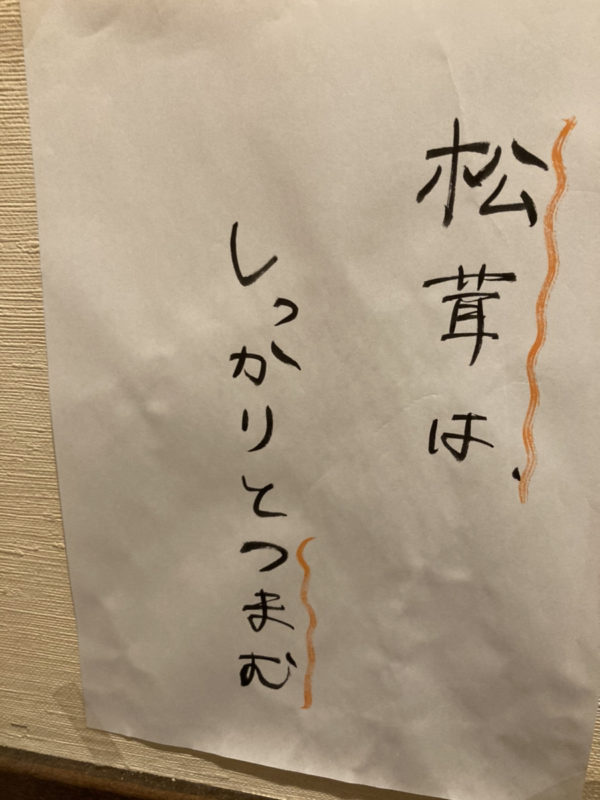 松茸は、
しっかりとつまむ